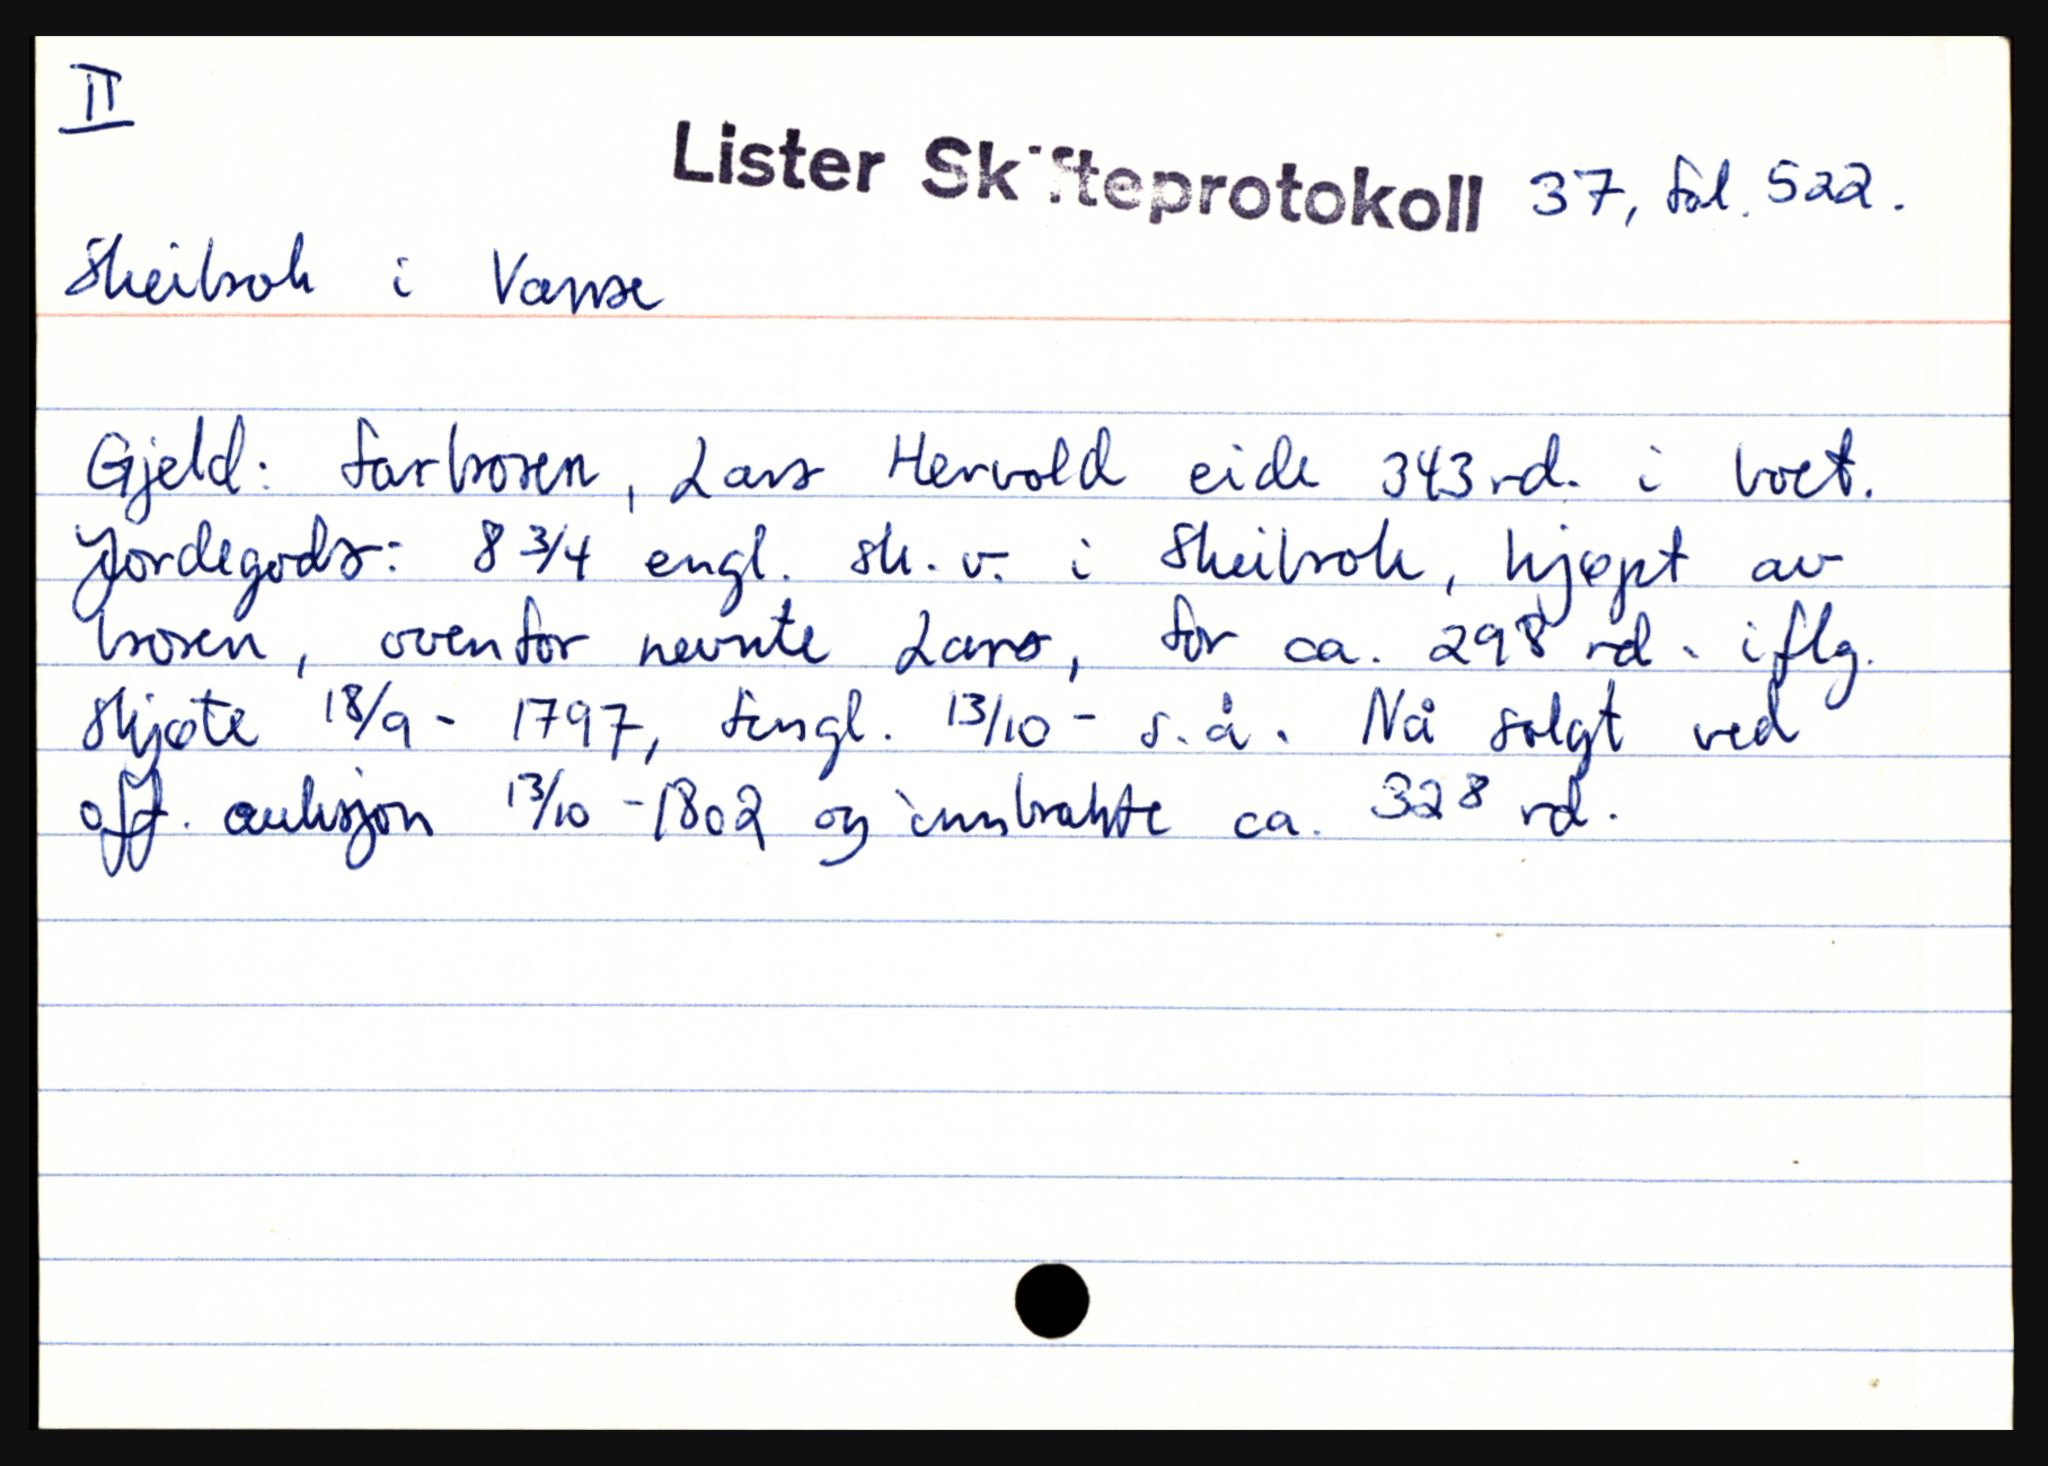 II
Lister Skifteprotokoll 37, fol. 522.
Skeibrok i Vanse
Gjeld: farbroren, Lars Hervold eide 343 rd. i boet.
Jordegods: 8 3/4 engl. sk. v. i Skeibrok, kjøpt av
broren, ovenfor nevnte Lars, for ca. 298 rd. iflg.
skjøte 18/9 - 1797, tingl. 13/10 - s.å. Nå solgt ved
off. auksjon 13/10 - 1802 og innbrakte ca. 328 rd.